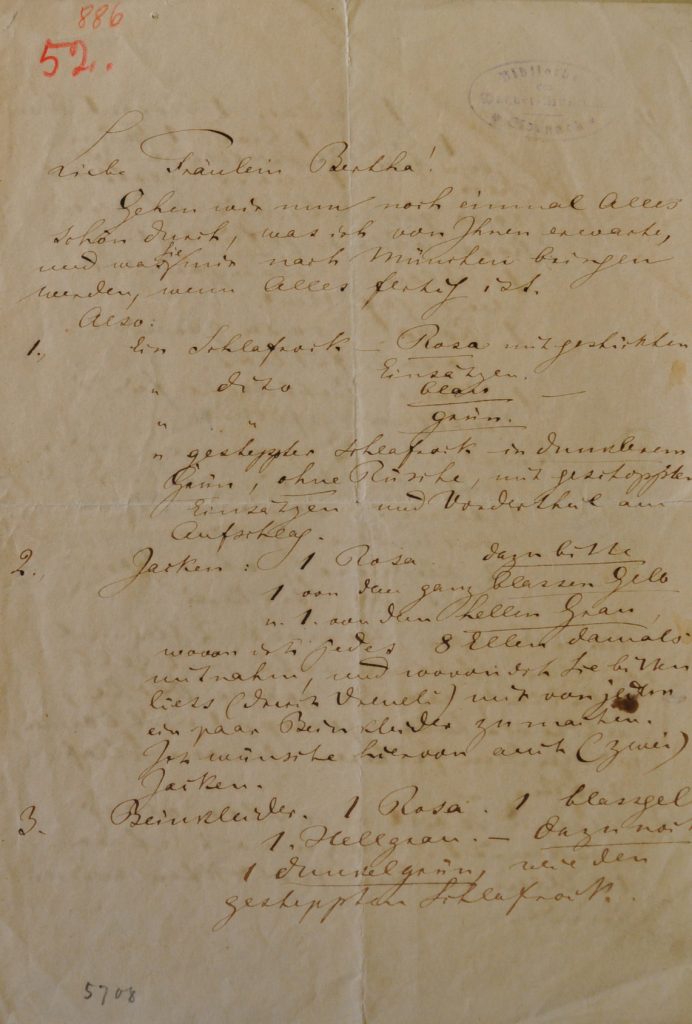 886
52.
Liebe Fräulein Bertha!
Gehen wir nun noch einmal Alles
schön durch, was ich von Ihnen erwarte,
und was Sie mir nach München bringen
werden, wenn Alles fertig ist.
Also:
1., Ein Schlafrock — Rosa mit gestickten
Einsätzen.
" dito blau —
" " grün.
" gesteppter Schlafrock in dunklerem
Grün, ohne Rüsche, mit gesteppten
Einsätzen und Vordertheil am
Aufschlag.
2. Jacken: 1 Rosa. dazu bitte
1 von dem ganz blassen Gelb
u. 1. von dem hellen Grau,
wovon ich jedes 8 Ellen damals
mitnahm, und wovon ich Sie bitten
liess (durch Vreneli) mir von jedem
ein paar Beinkleider zu machen.
Ich wünsche hiervon auch (zwei)
Jacken.
3. Beinkleider. 1 Rosa. 1 blassgel
1. Hellgrau. — dazu noch
1 dunkelgrün, wie den
gesteppten Schlafrock.
5708